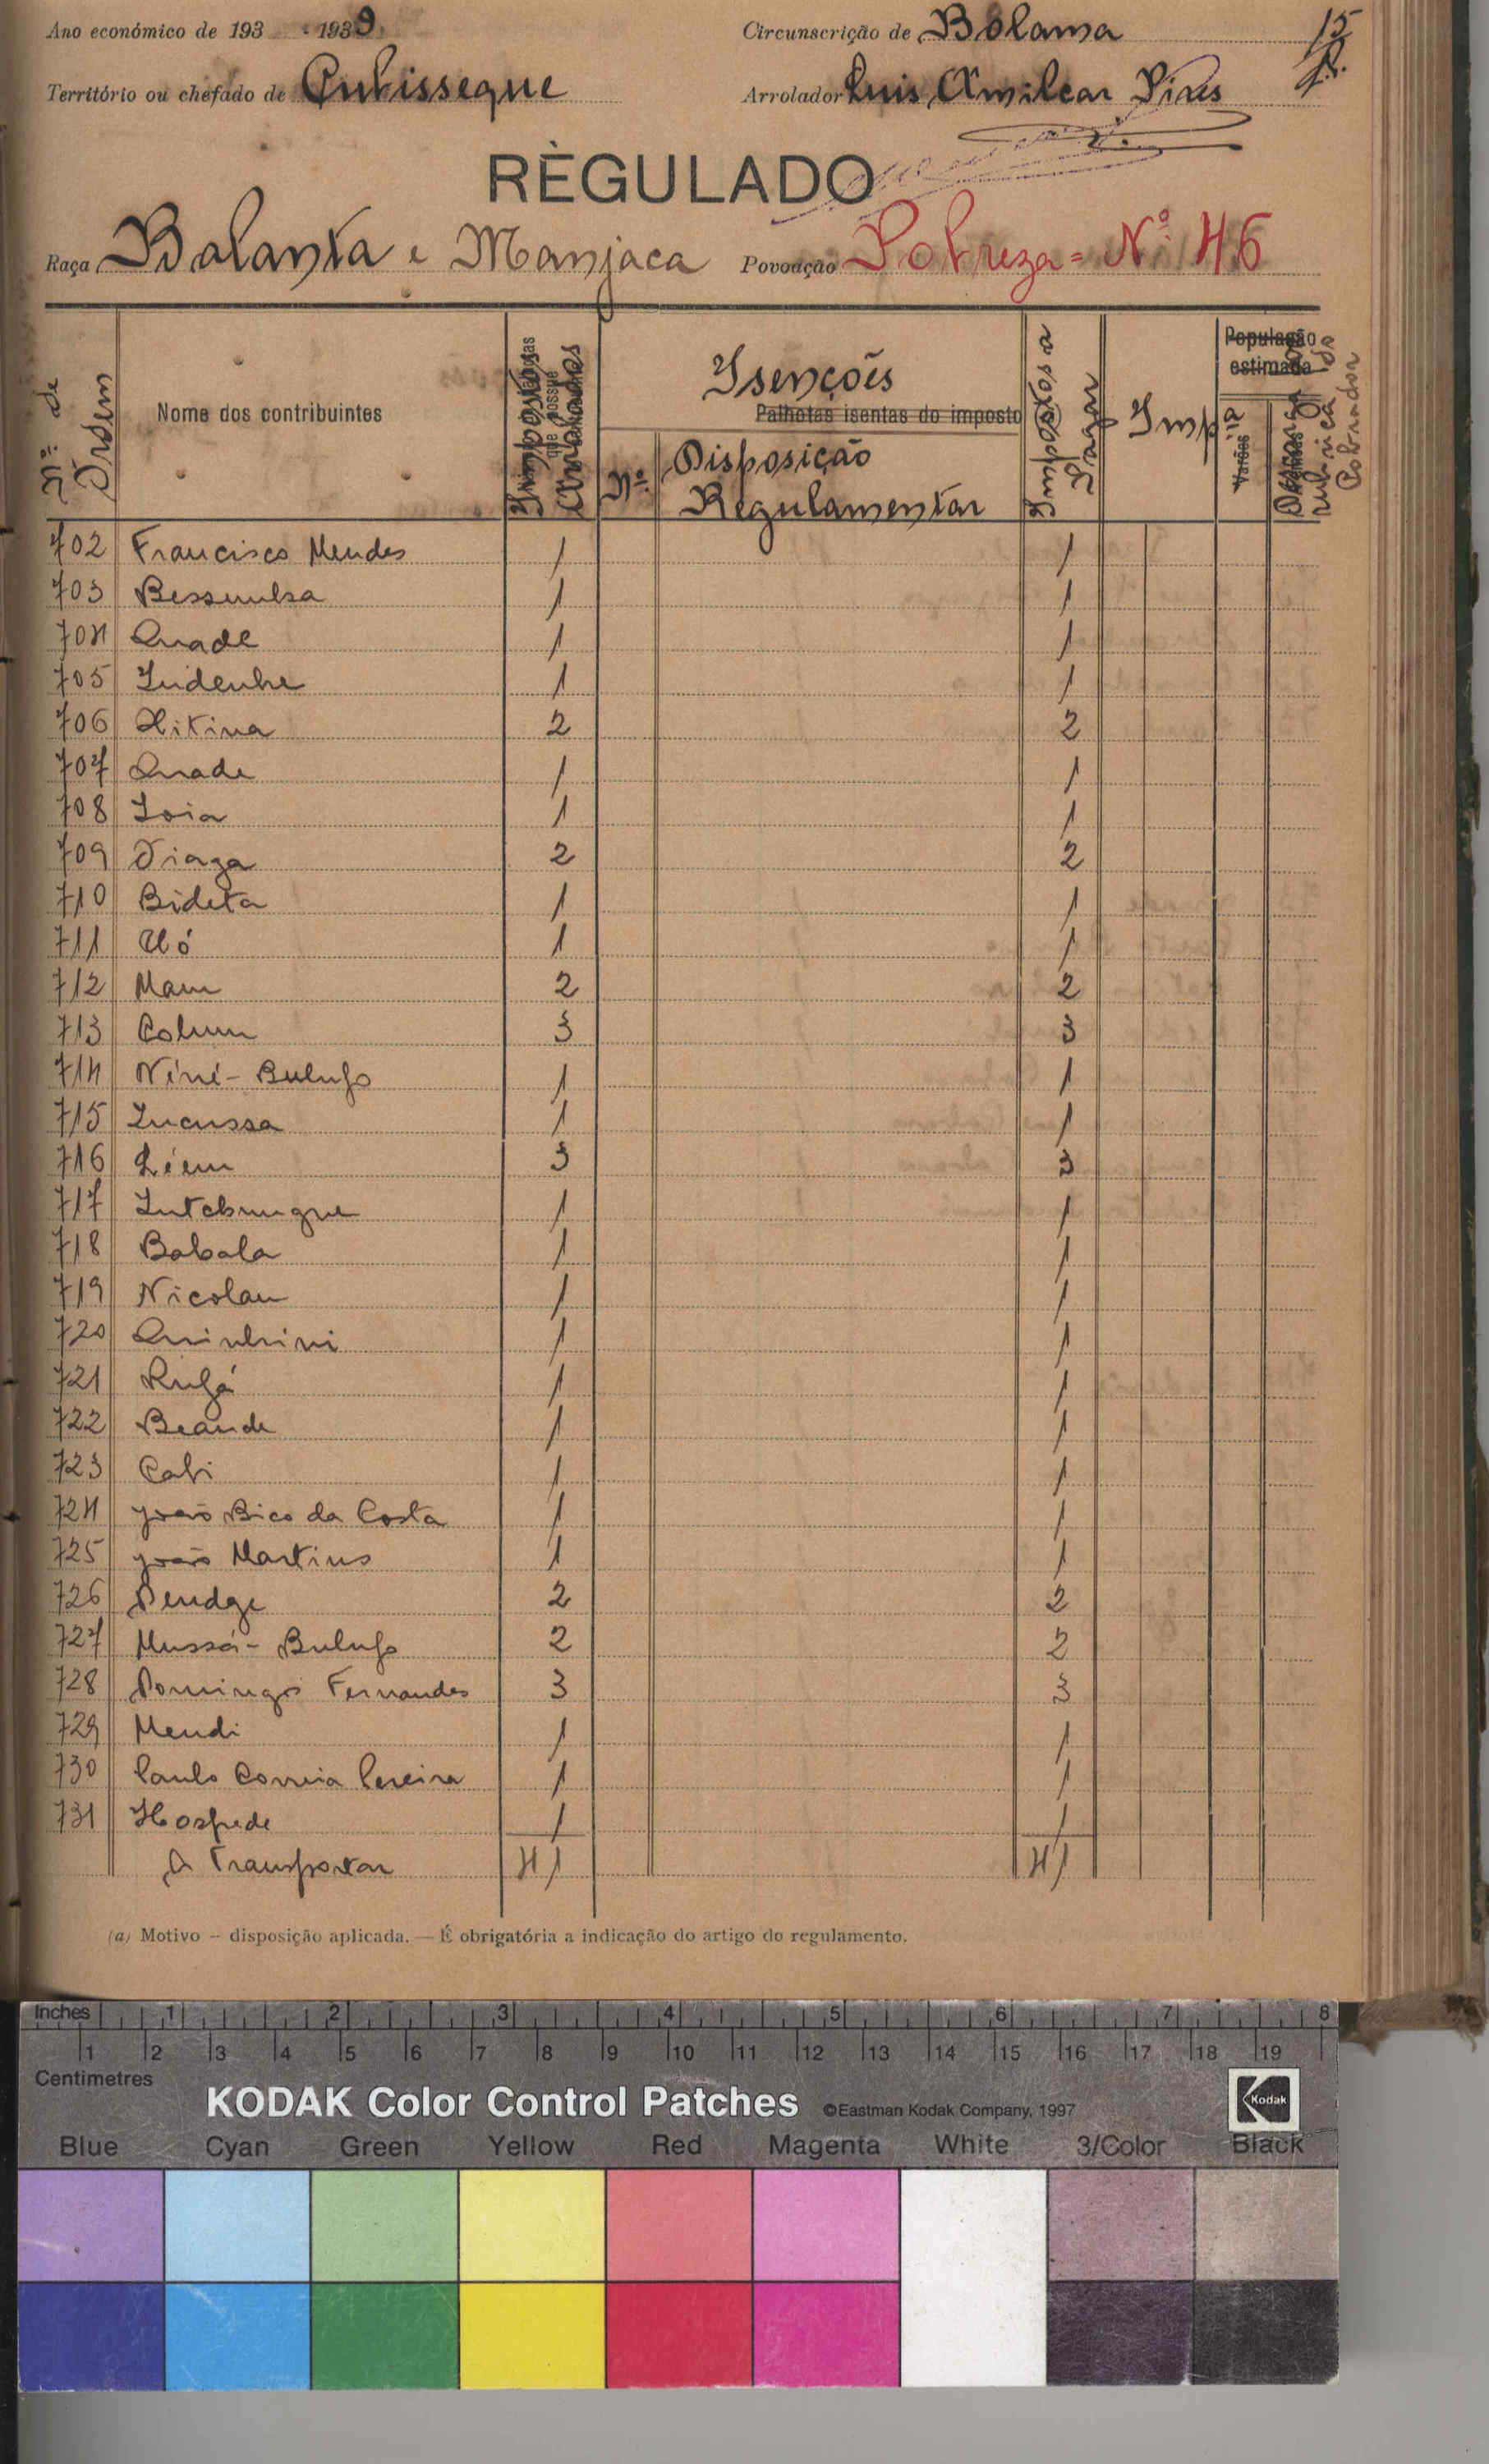 Ano económico de 193 - 1939
Circunscrição de Bolama
15
Território ou chefado de Cubisseque
Arrolador Luis Amilcar Pires
RÈGULADO
Raça Balanta e Manjaca
Povoação Pobreza = Nº 46
Nº de Ordem
Nome dos contribuintes
Impostos Arrolados
Isenções
Palhotas isentas do imposto
Nº
Disposição
Regulamentar
Impostos a Pagar
Imp
População estimada
Varões
rubrica do Cobrador
702 Francisco Mendes 1 1
703 1 1
704 Quade 1 1
705 Indenhe 1 1
706 1 1
706 Hitina 2 2
707 Quade 1 1
708 Ioia 1 1
709 Tiaga 2 2
710 Bideta 1 1
711 Uó 1 1
712 Mam 2 2
713 Colum 3 3
714 Niní - Bulufo 1 1
715 Incussa 1 1
716 3 3
717 1 1
718 Babala 1 1
719 Nicolau 1 1
720 Quinhini 1 1
721 Rufá 1 1
722 Beande 1 1
723 Cabi 1 1
724 João Bico da Costa 1 1
725 João Martins 1 1
726 Dendge 2 2
727 Mussá - Bulufo 2 2
728 Domingos Fernandes 3 3
729 Mendi 1 1
730 Paulo Correia Pereira 1 1
731 Hospede 1 1
A Transportar 41 41
(a) Motivo – disposição aplicada. — É obrigatória a indicação do artigo do regulamento.
Inches 1 2 3 4 5 6 7 8
1 2 3 4 5 6 7 8 9 10 11 12 13 14 15 16 17 18 19
Centimetres
KODAK Color Control Patches ©Eastman Kodak Company, 1997 Kodak
Blue Cyan Green Yellow Red Magenta White 3/Color Black